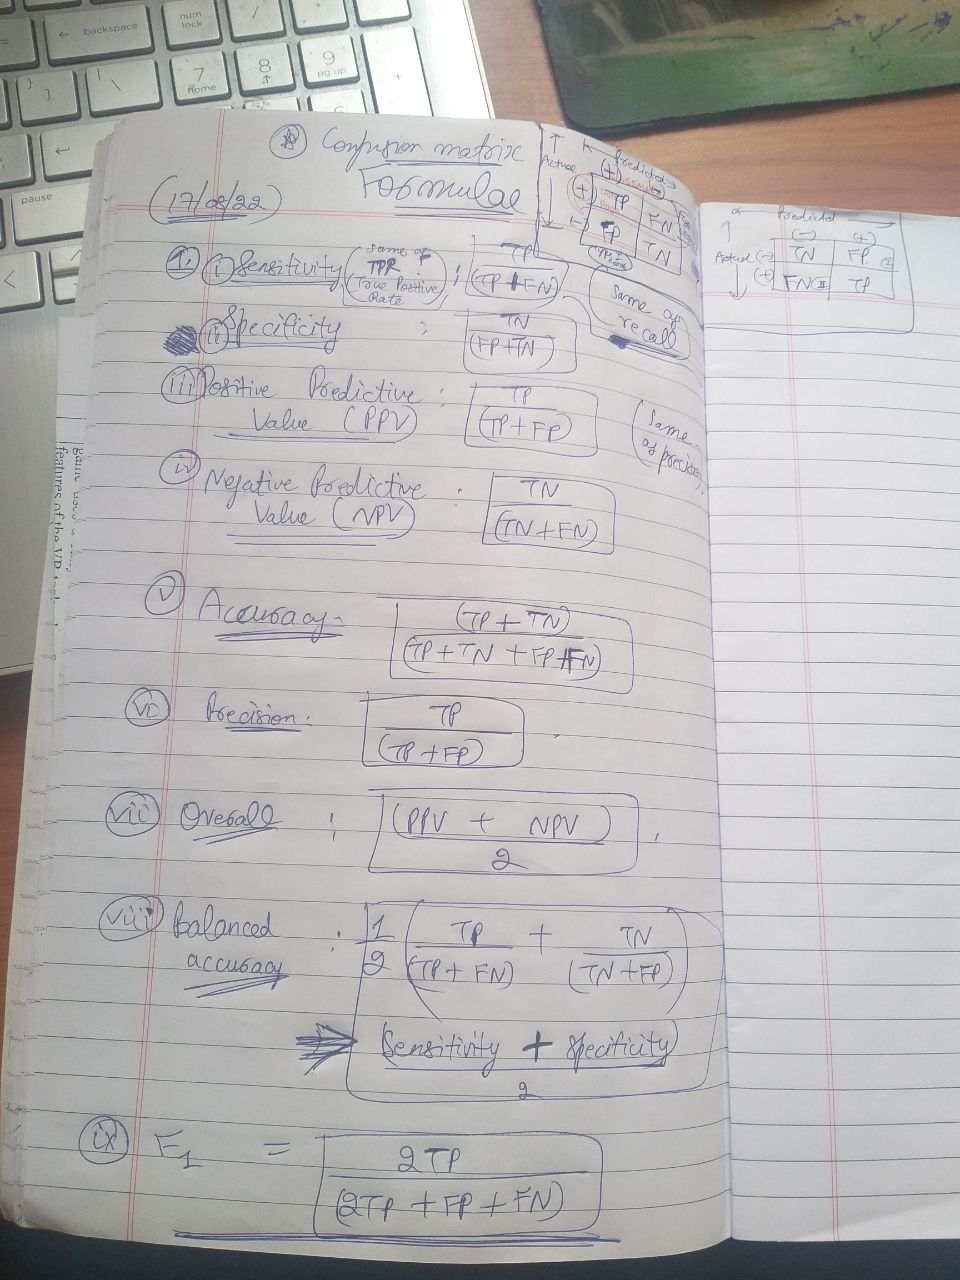 backspace
num lock
/
*
-
7 home
8
9 pg up
+
}
]
|
\
pause
<
>
Confusion matrix
Formulae
(17/08/22)
Actual
Predicted
(+)
(-)
(+) TP FN
(-) FP TN
Predicted
(-) (+)
Actual (-) TN FP
(+) FN II TP
1. (i) Sensitivity (Same of TPR True Positive Rate) : TP / (TP + FN)
Same of recall
(ii) Specificity : TN / (FP+TN)
(iii) Positive Predictive Value (PPV) : TP / (TP + FP)
(Same as precision)
(iv) Negative Predictive Value (NPV) : TN / (TN + FN)
(v) Accuracy - (TP + TN) / (TP + TN + FP + FN)
(vi) Precision : TP / (TP + FP)
(vii) Overall : (PPV + NPV) / 2
(viii) Balanced accuracy : 1/2 ( TP / (TP + FN) + TN / (TN + FP) )
(Sensitivity + Specificity) / 2
(ix) F1 = 2TP / (2TP + FP + FN)
features of the VR